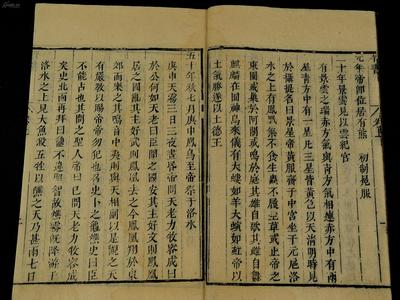 元年帝即位居有熊　初制冕服
二十年景雲見以雲紀官
有景雲之瑞赤方氣與青方氣相連赤方中有兩
星青方中有一星凡三星皆黃色以天清明時見
於攝提名曰景星帝黃服齋于中宮坐于玄扈洛
水之上有鳳凰集不食生蟲不履生草或止帝之
東園或巢於阿閣或鳴於庭其雄自歌其雌自舞
麒麟在囿神鳥來儀有大螻如羊大螾如虹帝以
土氣勝遂以土德王
五十年秋七月庚申鳳鳥至帝祭于洛水
庚申天霧三日三夜晝昏帝問天老力牧容成曰
於公何如天老曰臣聞之國安其主好文則鳳凰
居之國亂其主好武則鳳凰去之今鳳凰翔於東
郊而樂之其鳴音中夷則與天相副以是觀之天
有嚴教以賜帝帝勿犯也召史卜之龜燋史曰臣
不能占也其問之聖人帝曰已問天老力牧容成
矣史北面再拜曰龜不違聖智故燋霧既降游于
洛水之上見大魚殺五牲以醮之天乃甚雨七日